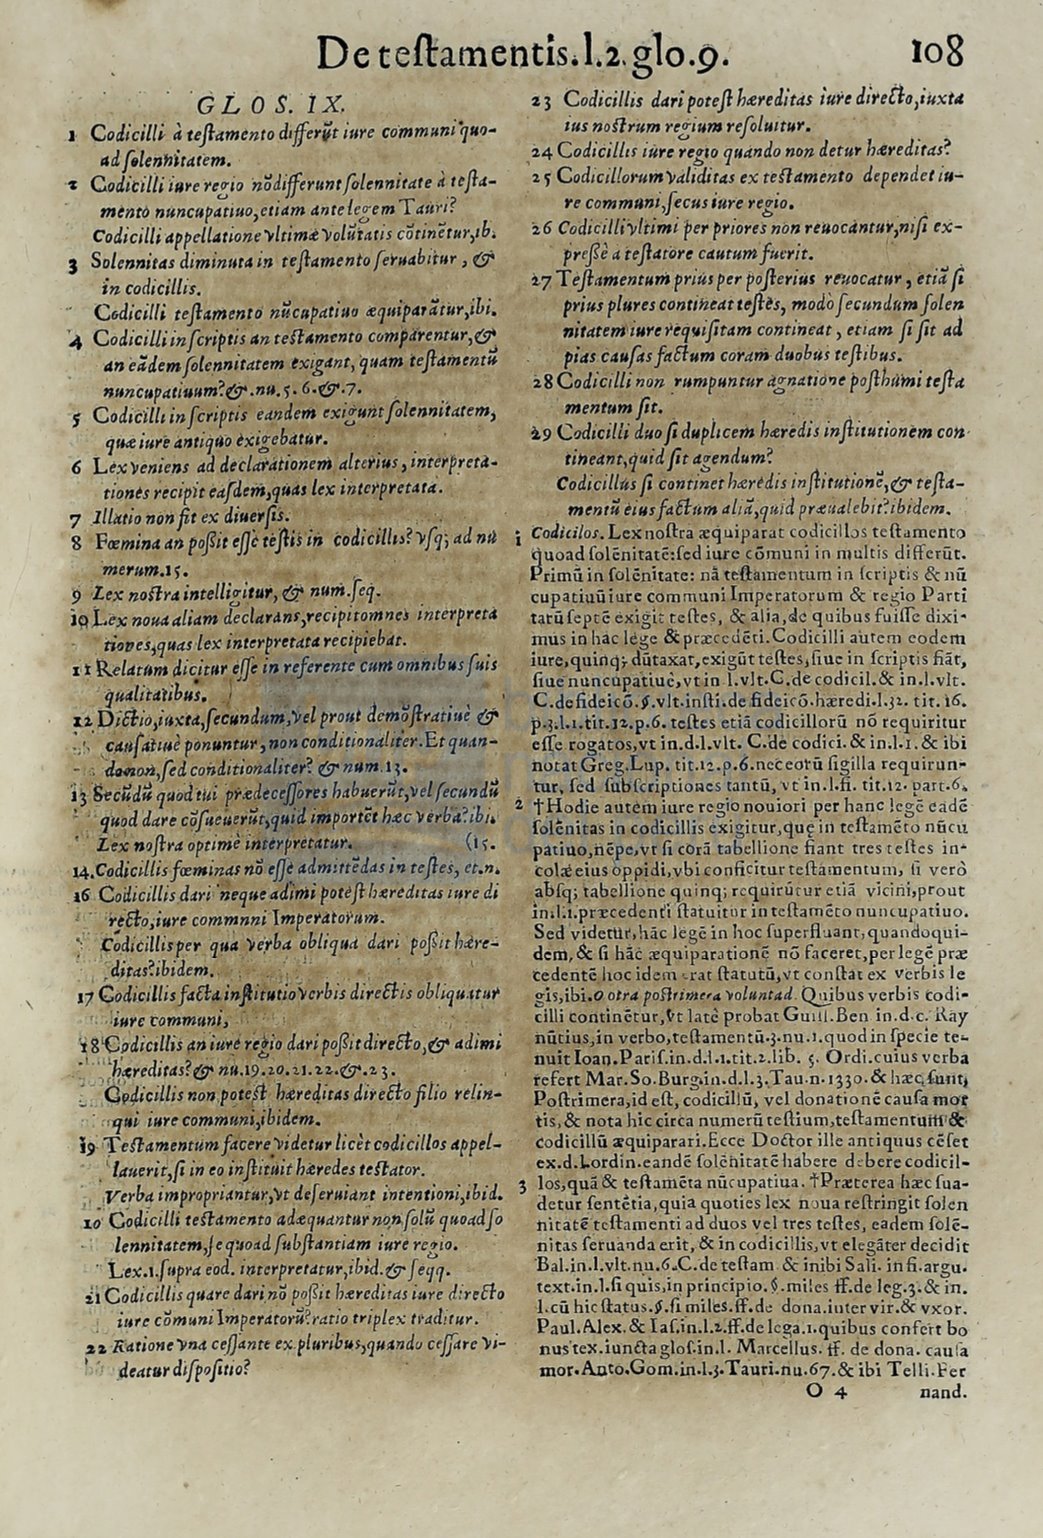 De testamentis.l.2.glo.9. 108
GLOS. IX.
1 Codicilli à testamento differũt iure communi quo-
ad solennitatem.
2 Codicilli iure regio nõ differunt solennitate à testa-
mento nuncupatiuo, etiam ante legem Tauri?
Codicilli appellatione vltimæ volũtatis cõtinẽtur, ib.
3 Solennitas diminuta in testamento seruabitur, &
in codicillis.
Codicilli testamento nũcupatiuo æquiparãtur, ibi.
4 Codicilli in scriptis an testamento comparentur, &
an eãdem solennitatem exigant, quam testamentũ
nuncupatiuum? &.nu.5.6.&.7.
5 Codicilli in scriptis eandem exigunt solennitatem,
quæ iure antiquo exigebatur.
6 Lex veniens ad declarationem alterius, interpreta-
tiones recipit easdem, quas lex interpretata.
7 Illatio non fit ex diuersis.
8 Fœmina an possit esse testis in codicillis? vsq; ad nu
merum.15.
9 Lex nostra intelligitur, & num.seq.
10 Lex noua aliam declarans, recipit omnes interpreta
tiones, quas lex interpretata recipiebat.
11 Relatum dicitur esse in referente cum omnibus suis
qualitatibus.
12 Dictio, iuxta, secundum, vel prout demõstratiuè &
causatiuè ponuntur, non conditionaliter. Et quan-
do non, sed conditionaliter? & num.13.
13 Secũdũ quod tui prædecessores habuerũt, vel secundũ
quod dare cõsueuerũt, quid importẽt hæc verba? ibi.
Lex nostra optimè interpretatur. (15.
14. Codicillis fœminas nõ esse admittẽdas in testes, et.n.
16 Codicillis dari neque adimi potest hæreditas iure di
recto, iure commnni Imperatorum.
Codicillis per qua verba obliqua dari possit hære-
ditas? ibidem.
17 Codicillis facta institutio verbis directis obliquatur
iure communi,
18 Codicillis an iure regio dari possit directo, & adimi
hæreditas? & nu.19.20.21.22.&.23.
Codicillis non potest hæreditas directo filio relin-
qui iure communi, ibidem.
19 Testamentum facere videtur licèt codicillos appel-
lauerit, si in eo instituit hæredes testator.
Verba impropriantur, vt deseruiant intentioni, ibid.
10 Codicilli testamento adæquantur non solũ quoad so
lennitatem, sequoad substantiam iure regio.
Lex.1.supra eod. interpretatur, ibid. & seqq.
21 Codicillis quare dari nõ possit hæreditas iure directo
iure cõmuni Imperatorũ? ratio triplex traditur.
22 Ratione vna cessante ex pluribus, quando cessare vi-
deatur dispositio?
23 Codicillis dari potest hæreditas iure directo, iuxta
ius nostrum regium resoluitur.
24 Codicillis iure regio quando non detur hæreditas?
25 Codicillorum validitas ex testamento dependet iu-
re communi, secus iure regio.
26 Codicilli vltimi per priores non reuocantur, nisi ex-
pressè à testatore cautum fuerit.
27 Testamentum prius per posterius reuocatur, etiã si
prius plures contineat testes, modò secundum solen
nitatem iure requisitam contineat, etiam si sit ad
pias causas factum coram duobus testibus.
28 Codicilli non rumpuntur agnatione posthumi testa
mentum sit.
29 Codicilli duo si duplicem hæredis institutionem con
tineant, quid sit agendum?
Codicillus si continet hæredis institutionẽ, & testa-
mentũ eius factum aliã, quid præualebit? ibidem.
1 Codicilos. Lex nostra æquiparat codicillos testamento
quoad solẽnitatẽ: sed iure cõmuni in multis differũt.
Primũ in solẽnitate: nã testamentum in scriptis & nũ
cupatiuũ iure communi Imperatorum & regio Parti
tarũ septẽ exigit testes, & alia, de quibus fuisse dixi-
mus in hac lege & præcedẽti. Codicilli autem eodem
iure, quinq; dũtaxat, exigũt testes, siue in scriptis fiãt,
siue nuncupatiuè, vt in l.vlt.C.de codicil.& in.l.vlt.
C.de fideicõ.§.vlt.insti.de fideicõ.hæredi.l.32. tit.16.
p.3.l.1.tit.12.p.6. testes etiã codicillorũ nõ requiritur
esse rogatos, vt in.d.l.vlt. C.de codici.& in.l.1.& ibi
notat Greg.Lup. tit.12.p.6.nec eorũ sigilla requirun-
tur, sed subscriptiones tantũ, vt in.l.fi. tit.12.part.6.
2 †Hodie autem iure regio nouiori per hanc legẽ eadẽ
solẽnitas in codicillis exigitur, quę in testamẽto nũcu
patiuo, nẽpe, vt si corã tabellione fiant tres testes in-
colæ eius oppidi, vbi conficitur testamentum, si verò
absq; tabellione quinq; requirũtur etiã vicini, prout
in.l.1.præcedenti statuitur in testamẽto nuncupatiuo.
Sed videtur, hãc legẽ in hoc superfluant, quandoqui-
dem, & si hãc æquiparationẽ nõ faceret, per legẽ præ
cedentẽ hoc idem erat statutũ, vt constat ex verbis le
gis, ibi. O otra postrimera voluntad. Quibus verbis codi-
cilli continẽtur, vt latè probat Guill.Ben in.d.c. Ray
nũtius, in verbo, testamentũ.3.nu.1.quod in specie te-
nuit Ioan.Paris.in.d.l.1.tit.2.lib. 5. Ordi.cuius verba
refert Mar.So.Burg.in.d.l.3.Tau.n.1330.& hæc sunt,
Postrimera, id est, codicillũ, vel donationẽ causa mor
tis, & nota hic circa numerũ testium, testamentum &
codicillũ æquiparari. Ecce Doctor ille antiquus cẽset
ex.d.l.ordin.eandẽ solẽnitatẽ habere debere codicil-
3 los, quã & testamẽta nũcupatiua. †Præterea hæc sua-
detur sentẽtia, quia quoties lex noua restringit solen
nitatẽ testamenti ad duos vel tres testes, eadem solẽ-
nitas seruanda erit, & in codicillis, vt elegãter decidit
Bal.in.l.vlt.nu.6.C.de testam. & inibi Sali. in fi.argu.
text.in.l.si quis, in principio.§.miles ff.de leg.3.& in.
l.cũ hic status.§.si miles.ff.de dona.inter vir.& vxor.
Paul.Alex.& Ias.in.l.2.ff.de lega.1.quibus confert bo
nus tex.iuncta glos.in.l. Marcellus. ff. de dona. causa
mor.Anto.Gom.in.l.3.Tauri.nu.67.& ibi Telli.Fer
O 4 nand.